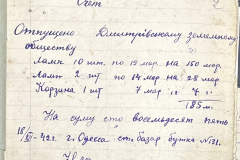 Счет
Отпущено Дмитрівському земельному
обществу
Ламп 10 шт. по 15 мар. на 150 мар.
Ламп 2 шт по 14 мар на 28 мар
Корзина 1 шт 7 мар " 7 "
185 м.
На суму сто восемьдесят пять
18/ -42 г. г. Одесса ст. базар будка №